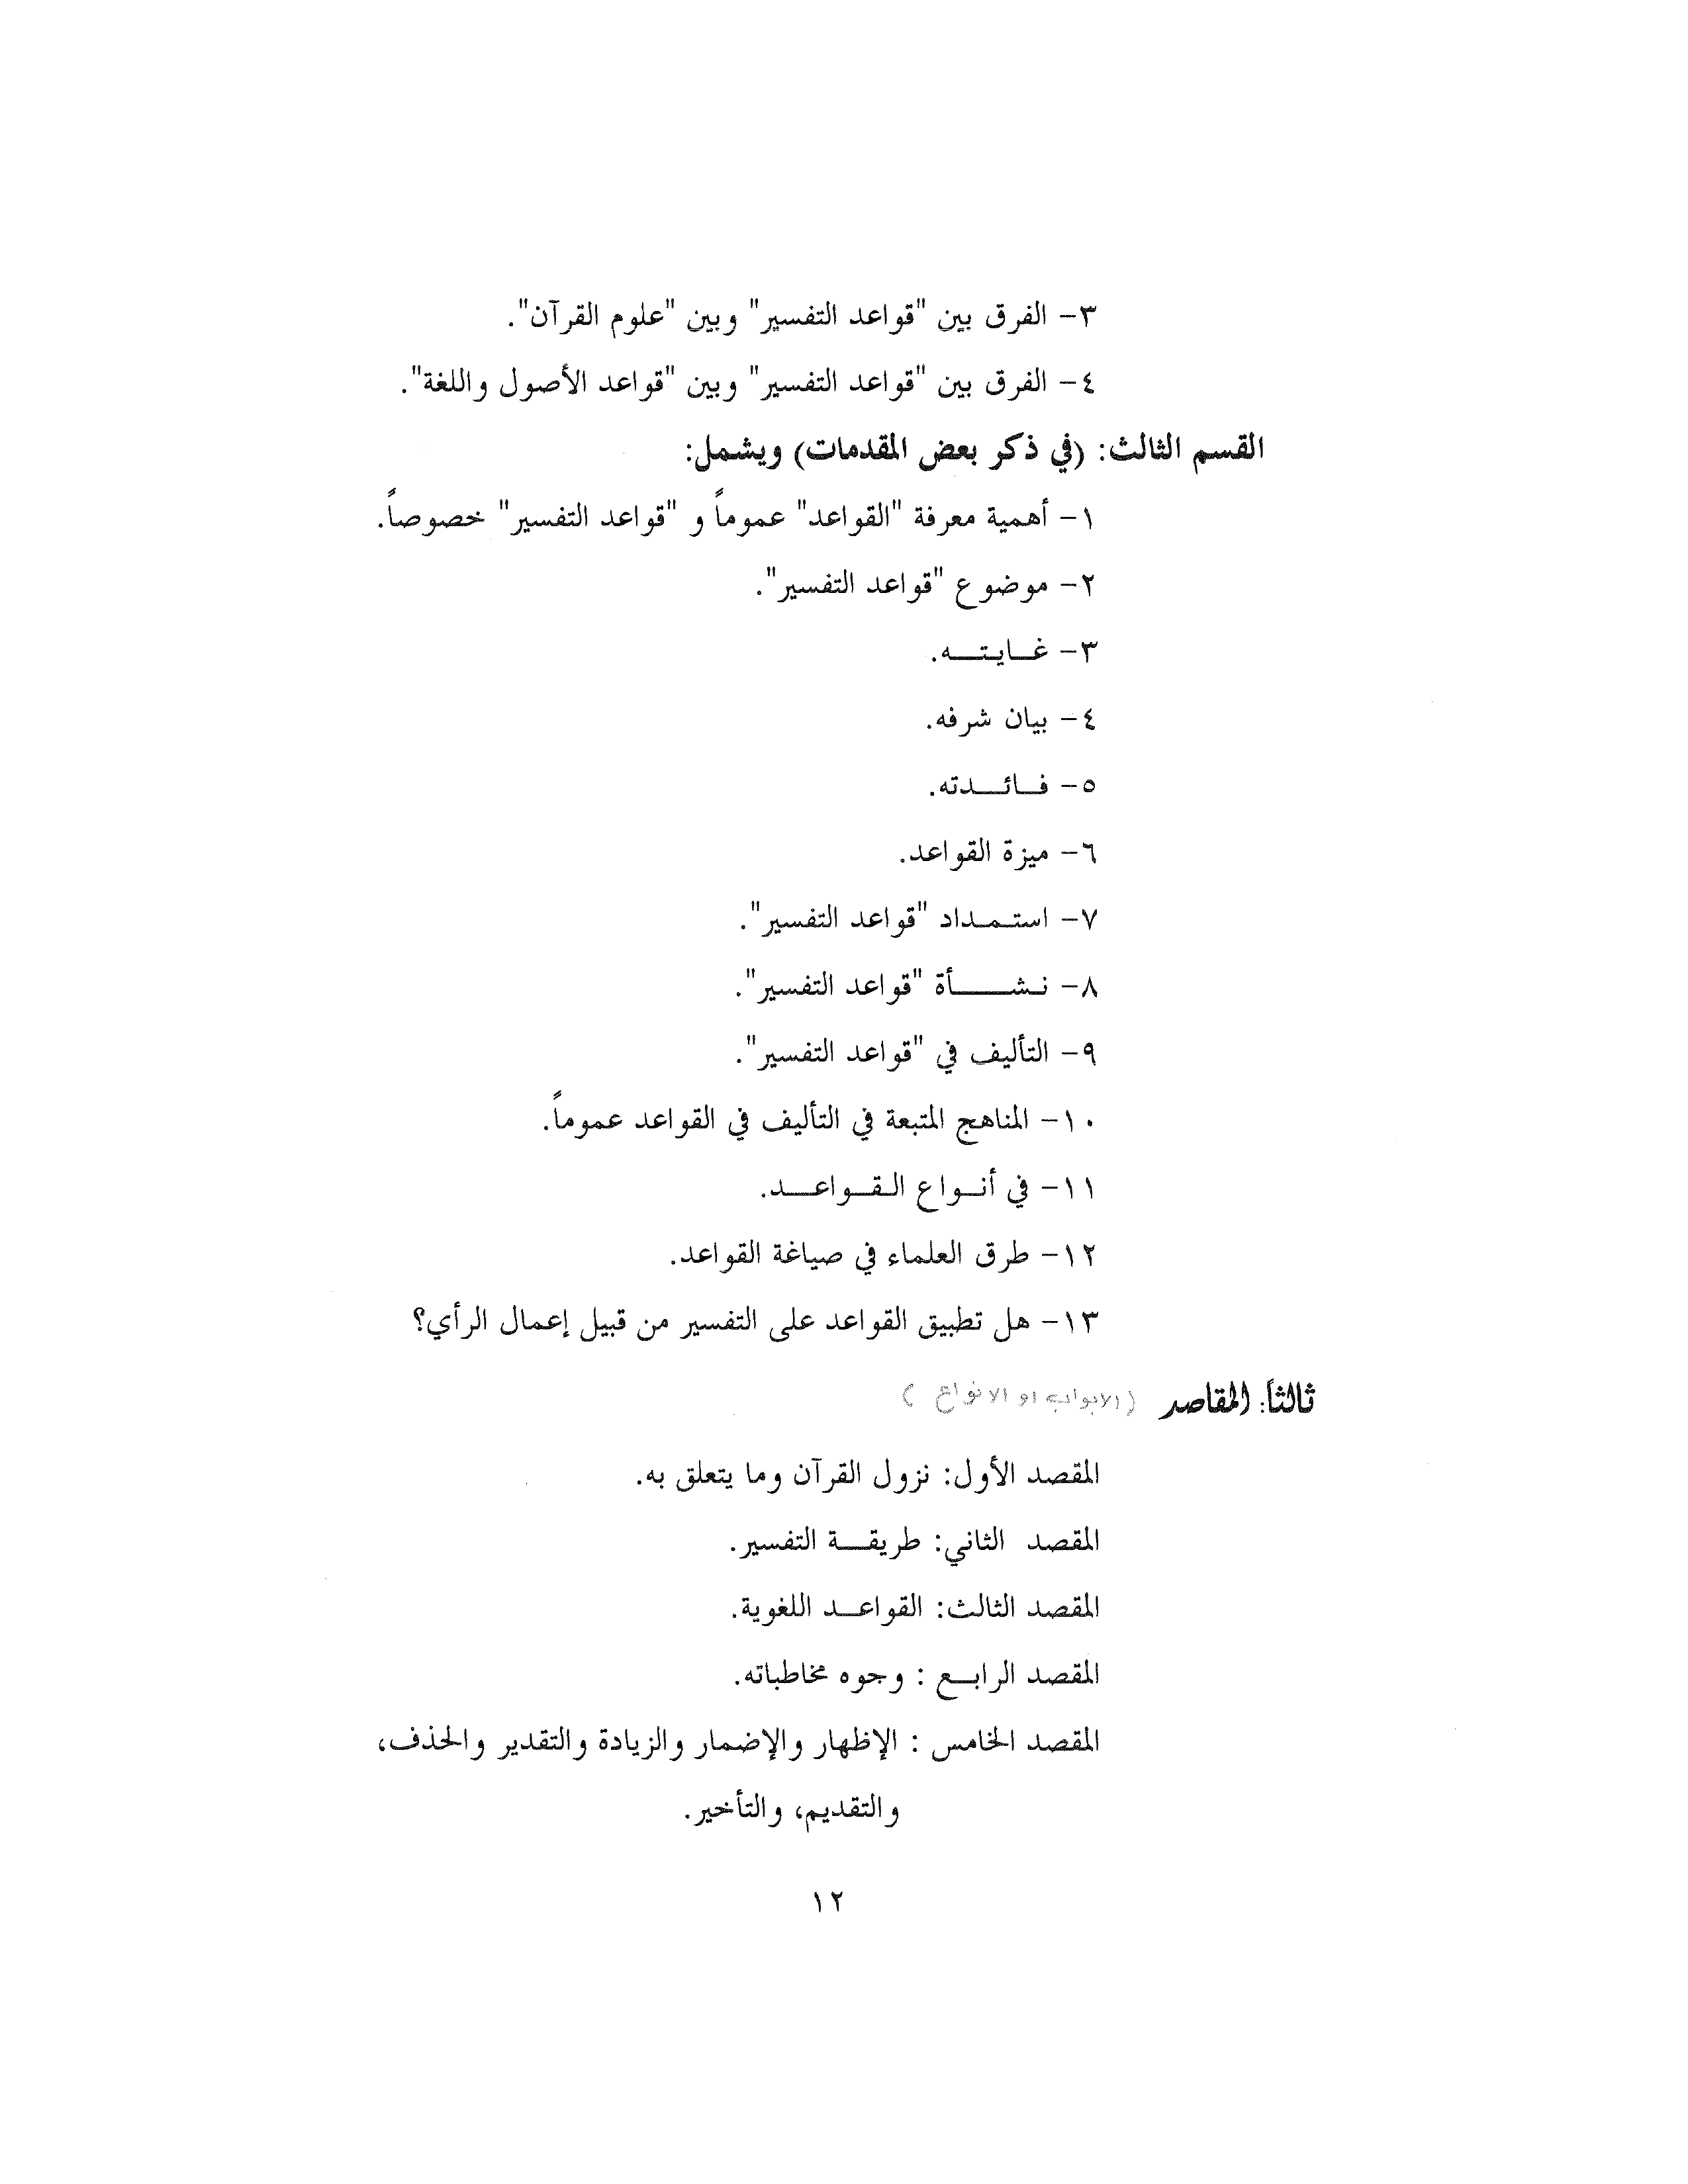 ٣- الفرق بين "قواعد التفسير" وبين "علوم القرآن".
٤- الفرق بين "قواعد التفسير" وبين "قواعد الأصول واللغة".
القسم الثالث: (في ذكر بعض المقدمات) ويشمل:
١- أهمية معرفة "القواعد" عموماً و "قواعد التفسير" خصوصاً.
٢- موضوع "قواعد التفسير".
٣- غـايـتـــه.
٤- بيان شرفه.
٥- فــائـــدته.
٦- ميزة القواعد.
٧- استـمـداد "قواعد التفسير".
٨- نـشـــــأة "قواعد التفسير".
٩- التأليف في "قواعد التفسير".
١٠- المناهج المتبعة في التأليف في القواعد عموماً.
١١- في أنــواع الـقــواعــــد.
١٢- طرق العلماء في صياغة القواعد.
١٣- هل تطبيق القواعد على التفسير من قبيل إعمال الرأي؟
ثالثاً: المقاصد (الابواب او الانواع)
المقصد الأول: نزول القرآن وما يتعلق به.
المقصد الثاني: طريقـــة التفسير.
المقصد الثالث: القواعــد اللغوية.
المقصد الرابــع : وجوه مخاطباته.
المقصد الخامس : الإظهار والإضمار والزيادة والتقدير والحذف،
والتقديم، والتأخير.
١٢